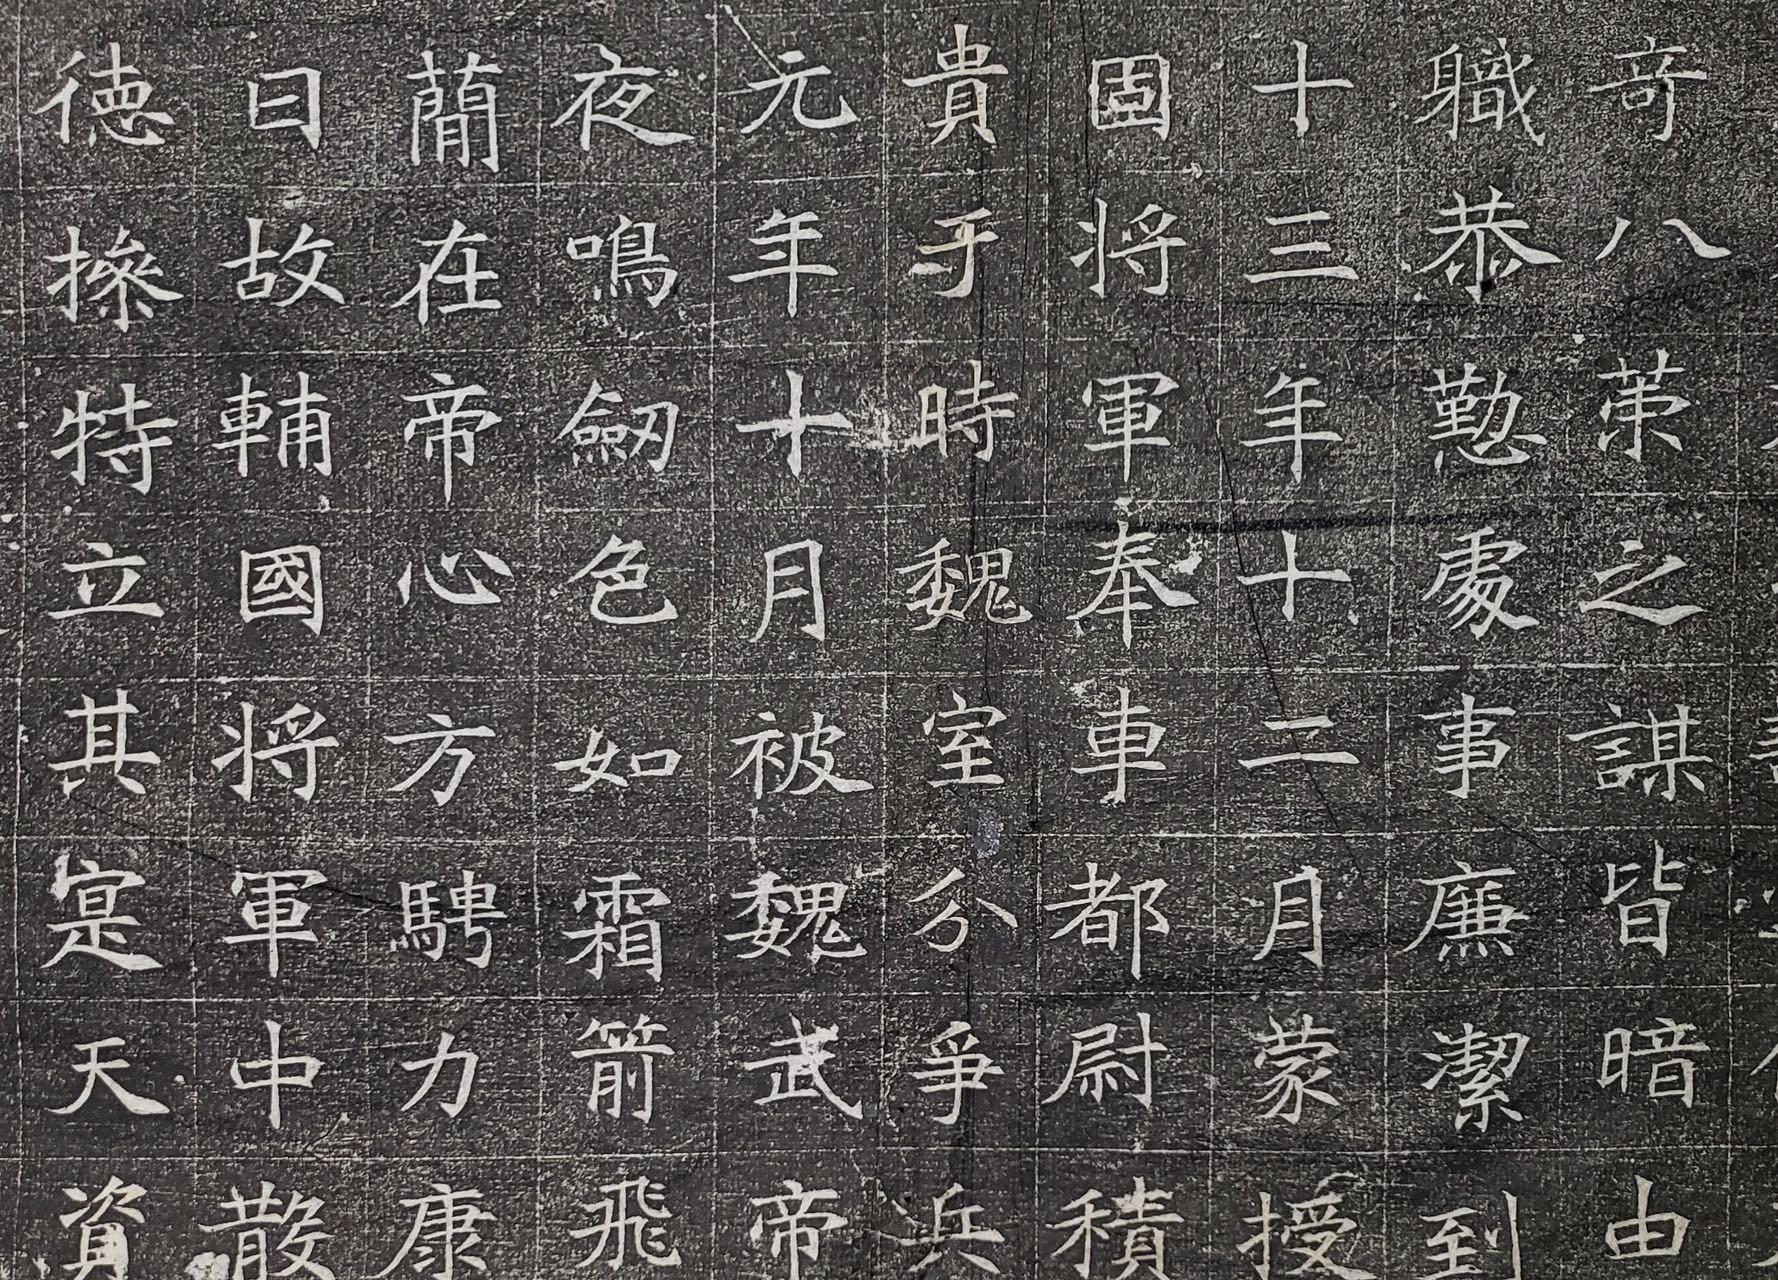 奇八策之謀皆暗由
職恭懃處事廉潔到
十三年十二月蒙授
固將軍奉車都尉積
貴于時魏室分爭兵
元年十月被魏武帝
夜鳴劒色如霜箭飛
蕳在帝心方騁力康
曰故輔國將軍中散
德操特立其寔天資